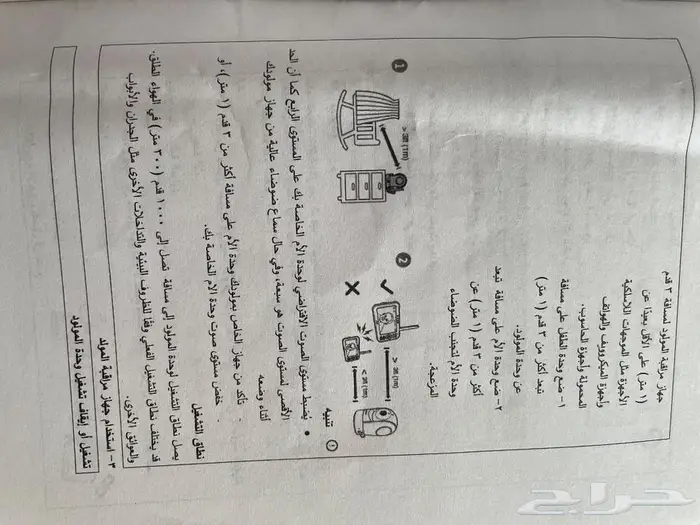 جهاز مراقبة المولود لمسافة ٣ قدم
(١ متر) على الأقل بعيدًا عن
الأجهزة مثل الموجهات اللاسلكية
وأجهزة الميكروويف والهواتف
المحمولة وأجهزة الحاسوب.
١- ضع وحدة الطفل على مسافة
تبعد أكثر من ٣ قدم (١ متر)
عن وحدة المولود.
٢- ضع وحدة الأم على مسافة تبعد
أكثر من ٣ قدم (١ متر) عن
وحدة الأم لتجنب الضوضاء
المزعجة.
1
> 3ft (1m)
2
> 3ft (1m)
< 3ft (1m)
تنبيه
• يُضبط مستوى الصوت الافتراضي لوحدة الأم الخاصة بك على المستوى الرابع كما أن الحد
الأقصى لمستوى الصوت هو سبعة، وفي حال سماع ضوضاء عالية من جهاز مولودك
أثناء وضعه
- تأكد من جهاز الخاص بمولودك وحدة الأم على مسافة أكثر من ٣ قدم (١ متر)، أو
- خفض مستوى صوت وحدة الام الخاصة بك.
نطاق التشغيل
يصل نطاق التشغيل لوحدة المولود إلى مسافة تصل إلى ١٠٠٠ قدم (٣٠٠ متر) في الهواء الطلق.
قد يختلف نطاق التشغيل الفعلي وفقًا للظروف البيئية والتداخلات الأخرى مثل الجدران والأبواب
والعوائق الأخرى.
٣- استخدام جهاز مراقبة المولد
تشغيل أو إيقاف تشغيل وحدة المولود
حراج